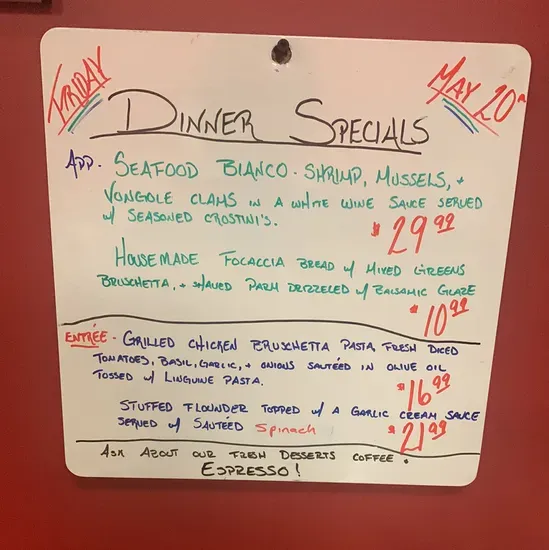 FRIDAY
MAY 20th
DINNER SPECIALS
APP. SEAFOOD BIANCO. SHRIMP, MUSSELS, +
VONGOLE CLAMS IN A WHITE WINE SAUCE SERVED
w/ SEASONED CROSTINI'S.
$29.99
HOUSEMADE FOCACCIA BREAD w/ MIXED GREENS
BRUSCHETTA, + SHAVED PARM DRIZZELED w/ BALSAMIC GLAZE
$10.99
ENTRÉE. GRILLED CHICKEN BRUSCHETTA PASTA, FRESH DICED
TOMATOES, BASIL, GARLIC, + ONIONS SAUTÉED IN OLIVE OIL
TOSSED w/ LINGUINE PASTA.
$16.99
STUFFED FLOUNDER TOPPED w/ A GARLIC CREAM SAUCE
SERVED w/ SAUTÉED Spinach
$21.99
ASK ABOUT OUR FRESH DESSERTS COFFEE.
ESPRESSO!